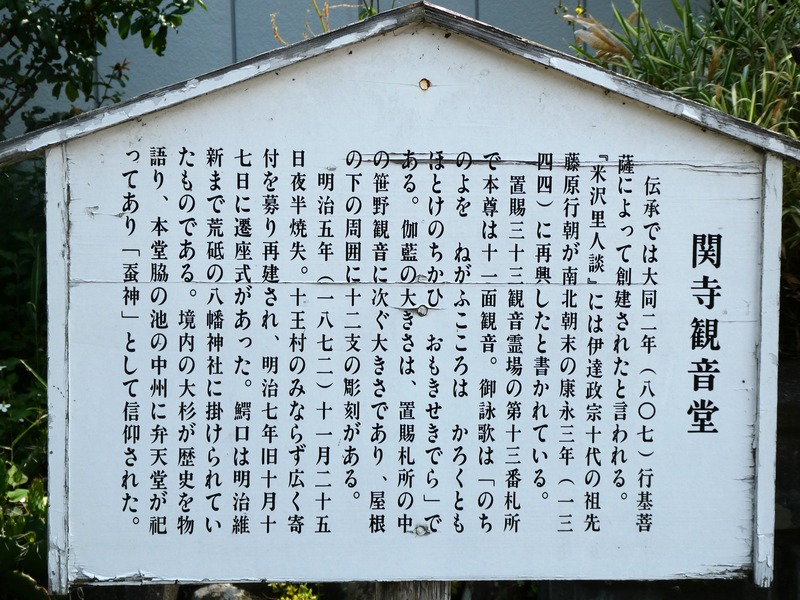 関寺観音堂
伝承では大同二年（八〇七）行基菩
薩によって創建されたと言われる。
『米沢里人談』には伊達政宗十代の祖先
藤原行朝が南北朝末の康永三年（一三
四四）に再興したと書かれている。
置賜三十三観音霊場の第十三番札所
で本尊は十一面観音。御詠歌は「のち
のよを　ねがふこころは　かろくとも
ほとけのちかひ　おもきせきでら」で
ある。伽藍の大きさは、置賜札所の中
の笹野観音に次ぐ大きさであり、屋根
の下の周囲に十二支の彫刻がある。
明治五年（一八七二）十一月二十五
日夜半焼失。十王村のみならず広く寄
付を募り再建され、明治七年旧十月十
七日に遷座式があった。鰐口は明治維
新まで荒砥の八幡神社に掛けられてい
たものである。境内の大杉が歴史を物
語り、本堂脇の池の中州に弁天堂が祀
ってあり「蚕神」として信仰された。